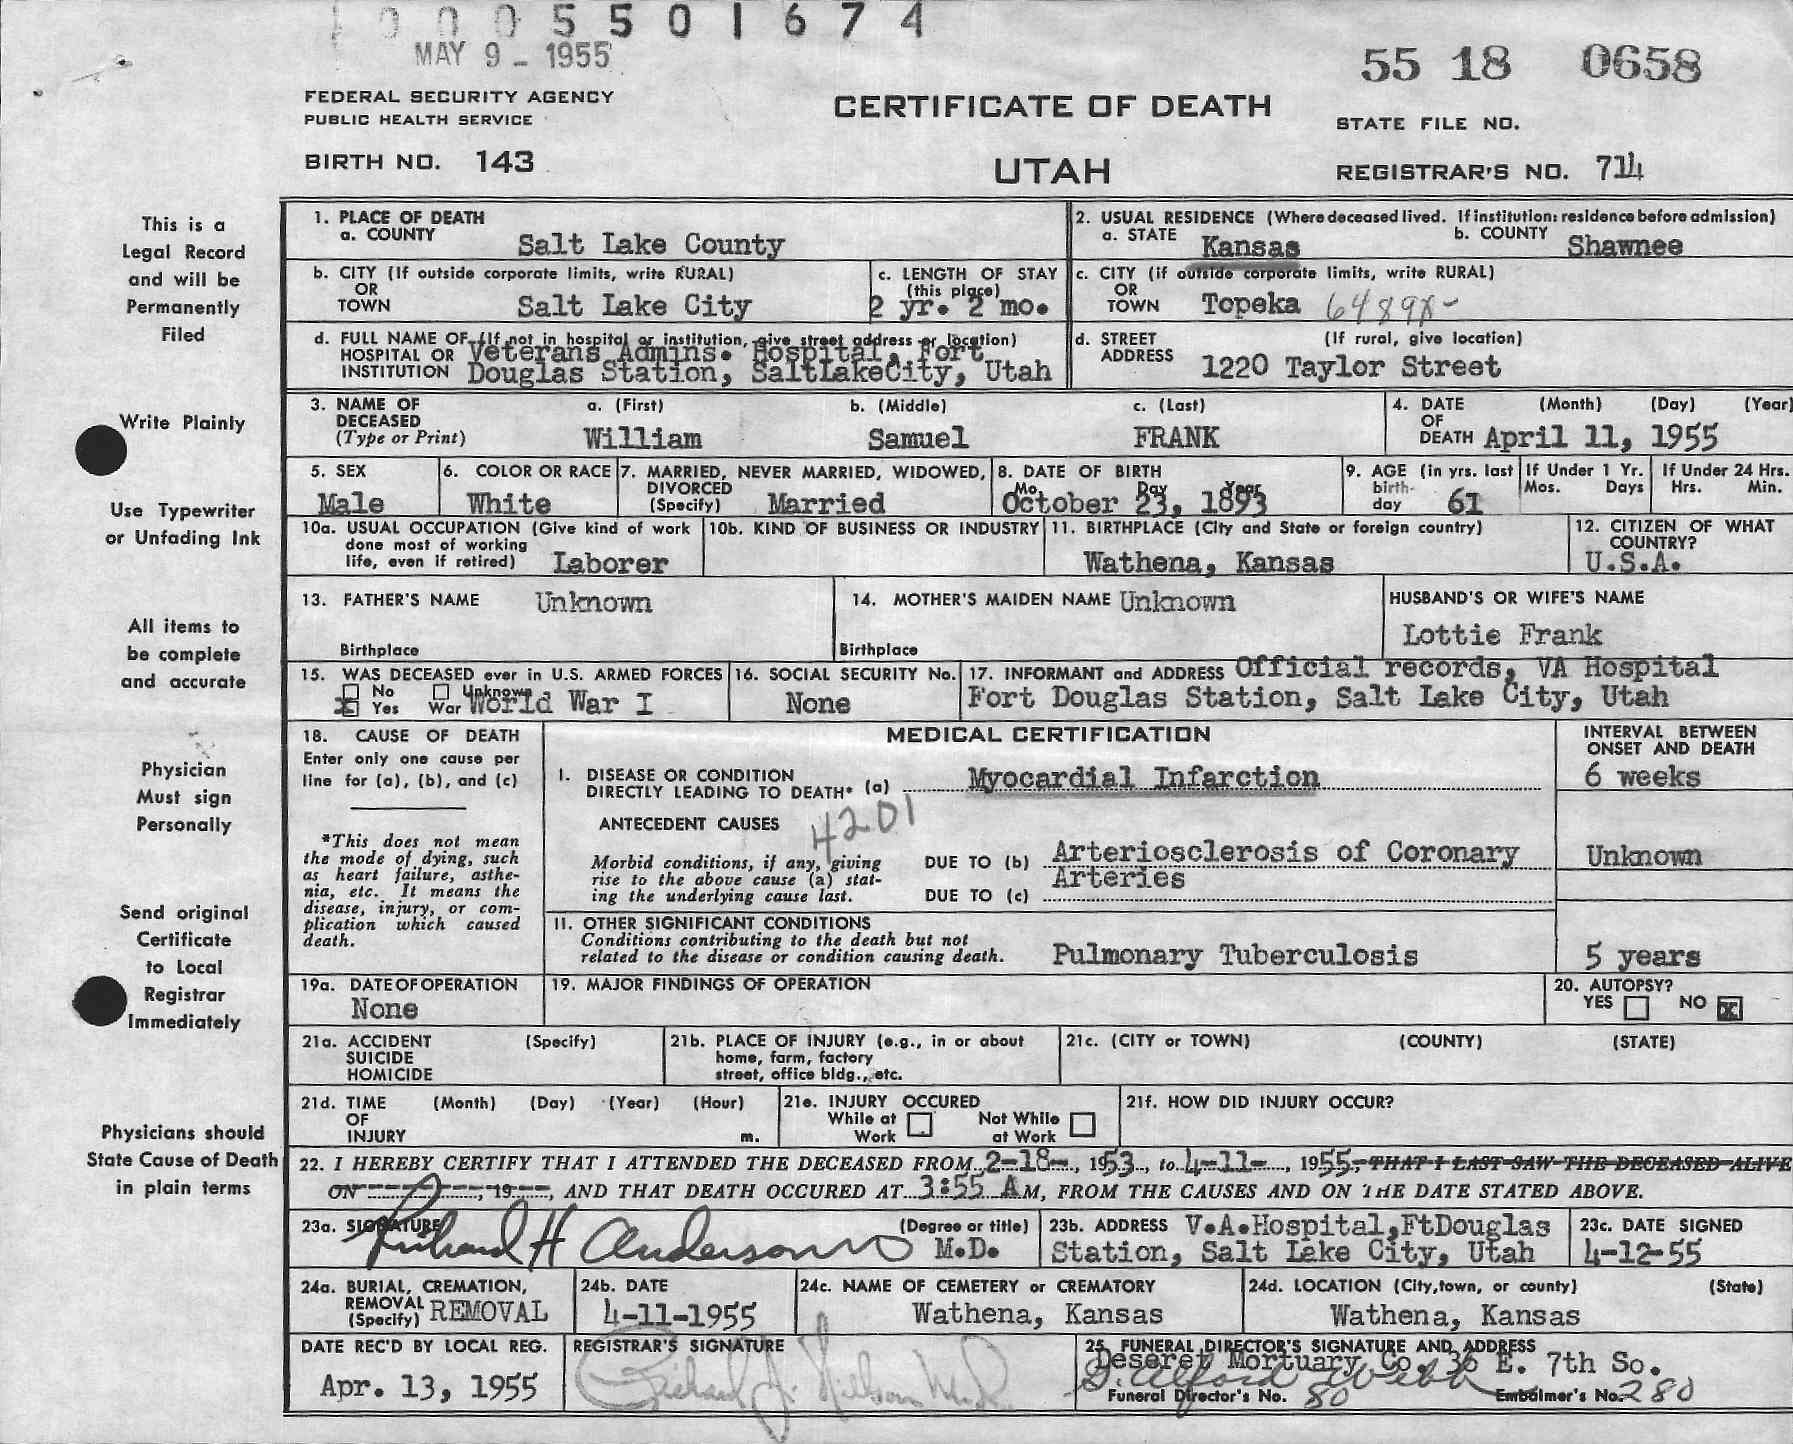 1 0 0 0 5 5 0 1 6 7 4
MAY 9 - 1955
55 18 0658
FEDERAL SECURITY AGENCY
PUBLIC HEALTH SERVICE
CERTIFICATE OF DEATH
STATE FILE NO.
BIRTH NO. 143
UTAH
REGISTRAR'S NO. 714
This is a
Legal Record
and will be
Permanently
Filed
Write Plainly
Use Typewriter
or Unfading Ink
All items to
be complete
and accurate
Physician
Must sign
Personally
Send original
Certificate
to Local
Registrar
Immediately
Physicians should
State Cause of Death
in plain terms
1. PLACE OF DEATH
a. COUNTY Salt Lake County
2. USUAL RESIDENCE (Where deceased lived. If institution: residence before admission)
a. STATE Kansas b. COUNTY Shawnee
b. CITY (If outside corporate limits, write RURAL)
OR
TOWN Salt Lake City
c. LENGTH OF STAY
(this place)
2 yr. 2 mo.
c. CITY (if outside corporate limits, write RURAL)
OR
TOWN Topeka 6489X-
d. FULL NAME OF (If not in hospital or institution, give street address or location)
HOSPITAL OR Veterans Admins. Hospital, Fort
INSTITUTION Douglas Station, SaltLakeCity, Utah
d. STREET (If rural, give location)
ADDRESS 1220 Taylor Street
3. NAME OF a. (First) b. (Middle) c. (Last)
DECEASED
(Type or Print) William Samuel FRANK
4. DATE (Month) (Day) (Year)
OF
DEATH April 11, 1955
5. SEX
Male
6. COLOR OR RACE
White
7. MARRIED, NEVER MARRIED, WIDOWED,
DIVORCED
(Specify) Married
8. DATE OF BIRTH
Mo. Day Year
October 23, 1893
9. AGE (in yrs. last
birth-
day 61
If Under 1 Yr.
Mos. Days
If Under 24 Hrs.
Hrs. Min.
10a. USUAL OCCUPATION (Give kind of work
done most of working
life, even if retired) Laborer
10b. KIND OF BUSINESS OR INDUSTRY
11. BIRTHPLACE (City and State or foreign country)
Wathena, Kansas
12. CITIZEN OF WHAT
COUNTRY?
U.S.A.
13. FATHER'S NAME Unknown
Birthplace
14. MOTHER'S MAIDEN NAME Unknown
Birthplace
HUSBAND'S OR WIFE'S NAME
Lottie Frank
15. WAS DECEASED ever in U.S. ARMED FORCES
No Unknown
X Yes War World War I
16. SOCIAL SECURITY No.
None
17. INFORMANT and ADDRESS Official records, VA Hospital
Fort Douglas Station, Salt Lake City, Utah
18. CAUSE OF DEATH
Enter only one cause per
line for (a), (b), and (c)
*This does not mean
the mode of dying, such
as heart failure, asthe-
nia, etc. It means the
disease, injury, or com-
plication which caused
death.
MEDICAL CERTIFICATION
INTERVAL BETWEEN
ONSET AND DEATH
I. DISEASE OR CONDITION
DIRECTLY LEADING TO DEATH* (a) Myocardial Infarction 6 weeks
ANTECEDENT CAUSES 4201
Morbid conditions, if any, giving
rise to the above cause (a) stat-
ing the underlying cause last.
DUE TO (b) Arteriosclerosis of Coronary Unknown
Arteries
DUE TO (c)
II. OTHER SIGNIFICANT CONDITIONS
Conditions contributing to the death but not
related to the disease or condition causing death. Pulmonary Tuberculosis 5 years
19a. DATE OF OPERATION
None
19. MAJOR FINDINGS OF OPERATION
20. AUTOPSY?
YES NO X
21a. ACCIDENT (Specify)
SUICIDE
HOMICIDE
21b. PLACE OF INJURY (e.g., in or about
home, farm, factory
street, office bldg., etc.
21c. (CITY or TOWN) (COUNTY) (STATE)
21d. TIME (Month) (Day) (Year) (Hour)
OF
INJURY m.
21e. INJURY OCCURED
While at Work Not While at Work
21f. HOW DID INJURY OCCUR?
22. I HEREBY CERTIFY THAT I ATTENDED THE DECEASED FROM 2-18-, 1953, to 4-11-, 1955, THAT I LAST SAW THE DECEASED ALIVE
ON ----, 19--, AND THAT DEATH OCCURED AT 3:55 AM, FROM THE CAUSES AND ON THE DATE STATED ABOVE.
23a. SIGNATURE (Degree or title)
Richard H Anderson M.D.
23b. ADDRESS V.A.Hospital,FtDouglas
Station, Salt Lake City, Utah
23c. DATE SIGNED
4-12-55
24a. BURIAL, CREMATION,
REMOVAL
(Specify) REMOVAL
24b. DATE
4-11-1955
24c. NAME OF CEMETERY or CREMATORY
Wathena, Kansas
24d. LOCATION (City, town, or county) (State)
Wathena, Kansas
DATE REC'D BY LOCAL REG.
Apr. 13, 1955
REGISTRAR'S SIGNATURE
Richard J. Nilson M.D.
25. FUNERAL DIRECTOR'S SIGNATURE AND ADDRESS
Deseret Mortuary Co. 36 E. 7th So.
Funeral Director's No. 80 Embalmer's No. 280